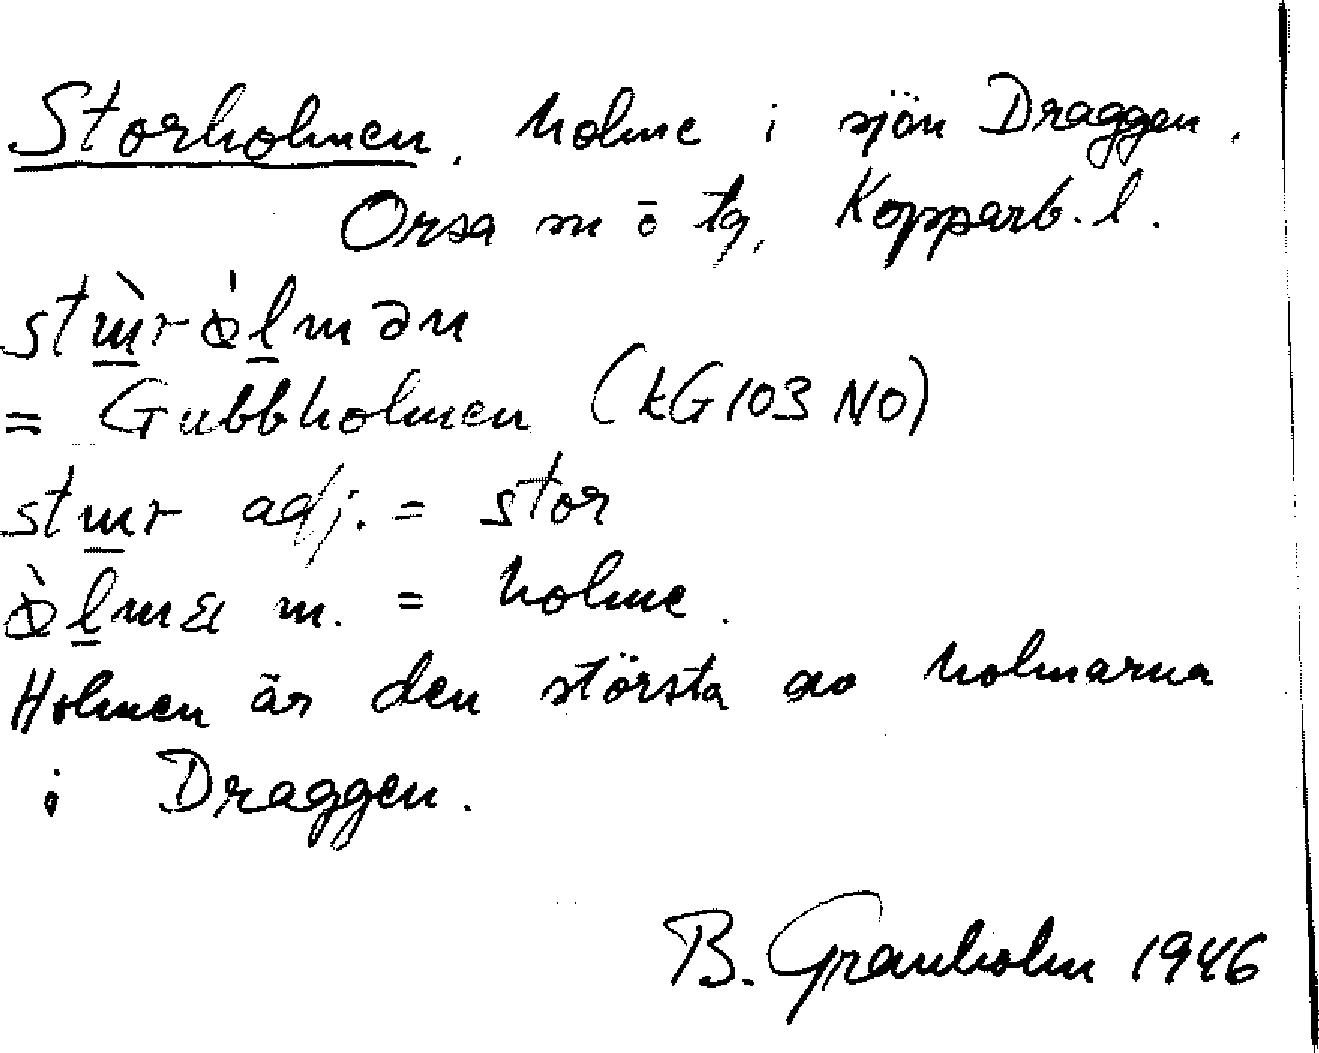 Storholmen. holme i sjön Draggen.
Orsa s ö tg, Kopparb. l.
= Gubbholmen (kG103 NO)
adj. = stor
m. = holme.
Holmen är den största av holmarna
i Draggen.
B. Granholm 1946